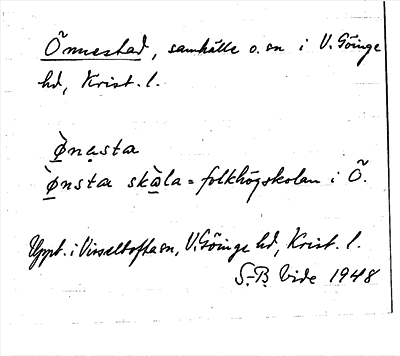 Önnestad, samhälle o. sn i V. Göinge
hd, Krist. l.
Ø̀nesta
Ø̀nsta skàla = folkhögskolan i Ö.
Uppt. i Visseltofta sn, V. Göinge hd, Krist. l.
S.-B. Vide 1948